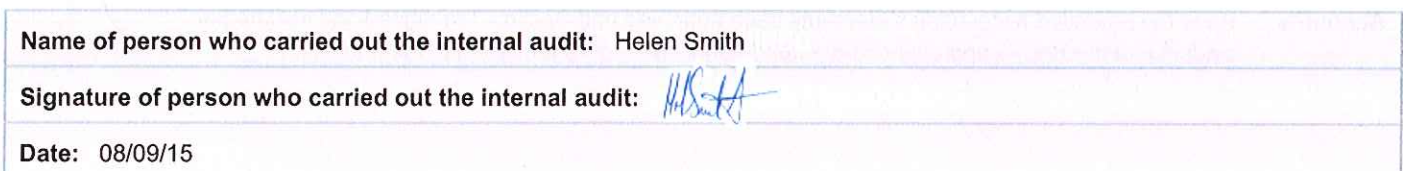 Name of person who carried out the internal audit: Helen Smith
Signature of person who carried out the internal audit:
Date: 08/09/15